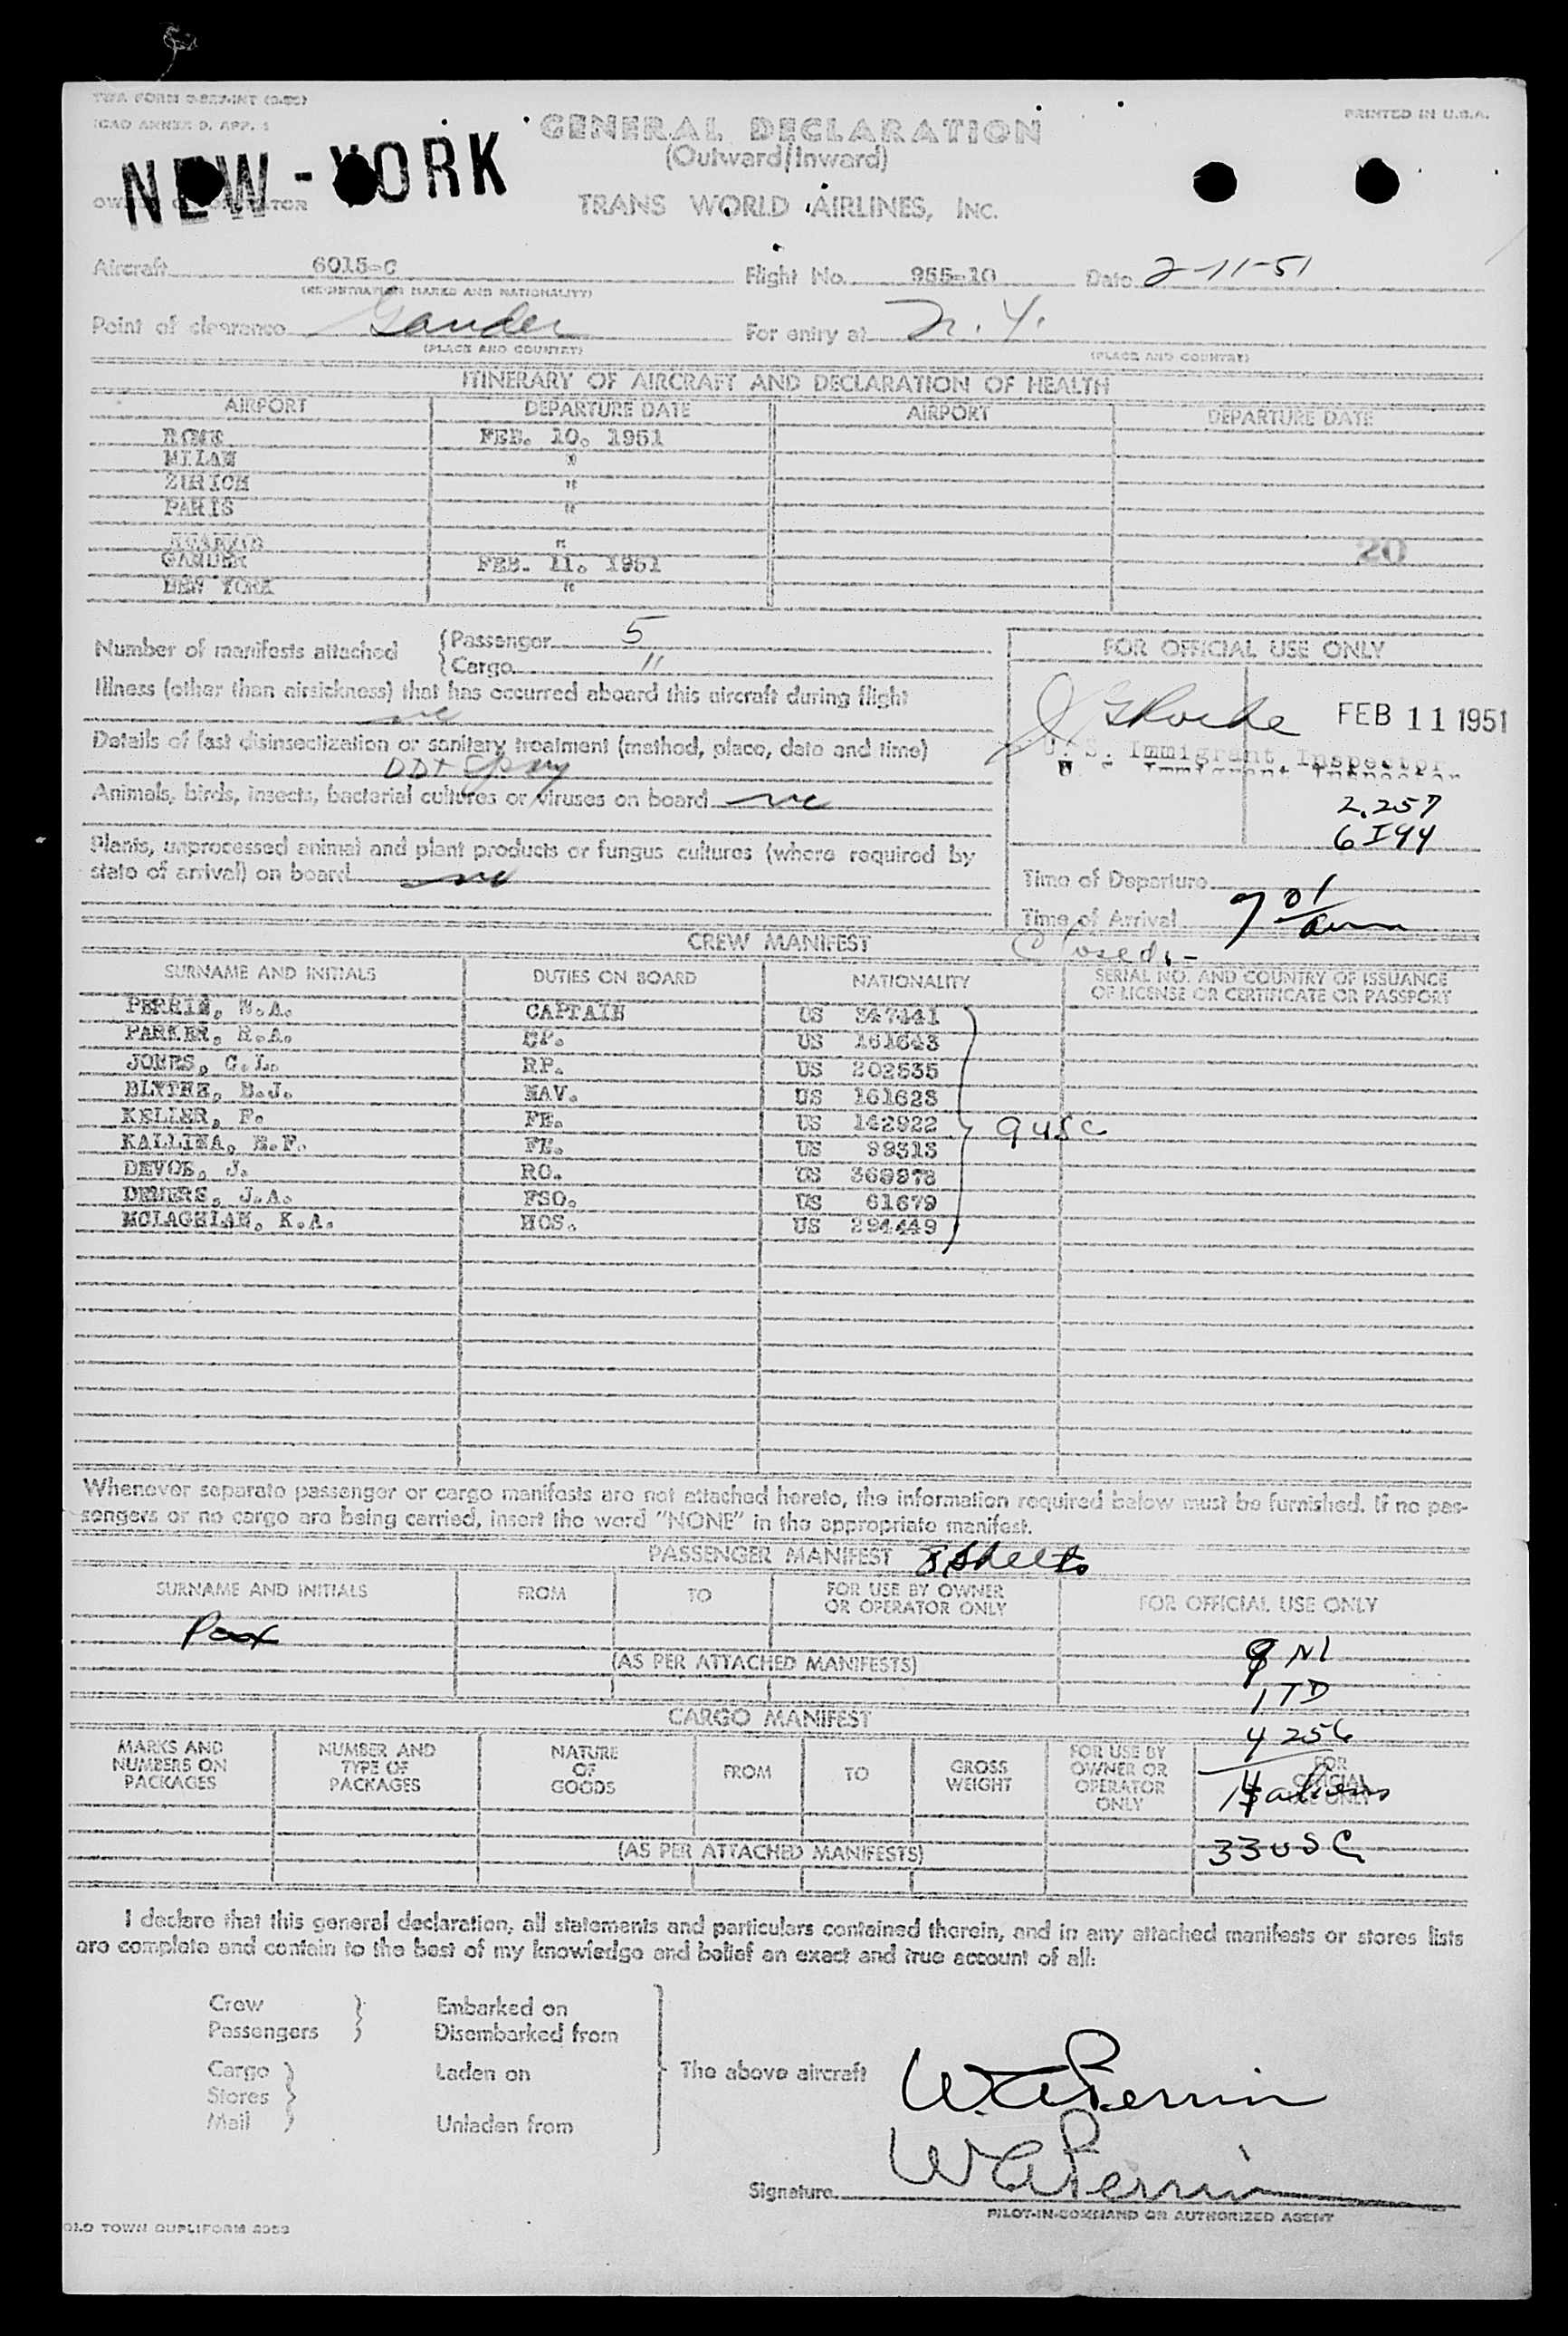 TWA FORM
ICAO ANNEX 9, APP. 1
PRINTED IN U.S.A.
GENERAL DECLARATION
(Outward/Inward)
NEW-YORK
TRANS WORLD AIRLINES, INC.
Aircraft 6015-C Flight No. 955-10 Date 2-11-51
(REGISTRATION MARKS AND NATIONALITY)
Point of clearance Gander For entry at N.Y.
(PLACE AND COUNTRY) (PLACE AND COUNTRY)
ITINERARY OF AIRCRAFT AND DECLARATION OF HEALTH
AIRPORT DEPARTURE DATE AIRPORT DEPARTURE DATE
ROME FEB. 10. 1951
MILAN "
ZURICH "
PARIS "
"
20
GANDER FEB. 11. 1951
NEW YORK "
Number of manifests attached
Passenger 5
Cargo "
FOR OFFICIAL USE ONLY
Illness (other than airsickness) that has occurred aboard this aircraft during flight
FEB 11 1951
Details of last disinsectization or sanitary treatment (method, place, date and time)
U. S. Immigrant Inspector
DDT Spray
Animals, birds, insects, bacterial cultures or viruses on board
2.257
6I44
Plants, unprocessed animal and plant products or fungus cultures (where required by
state of arrival) on board
Time of Departure
Time of Arrival 7 01 am
CREW MANIFEST
Closed.-
SURNAME AND INITIALS DUTIES ON BOARD NATIONALITY SERIAL NO. AND COUNTRY OF ISSUANCE
OF LICENSE OR CERTIFICATE OR PASSPORT
PERRIN, W.A. CAPTAIN US 347441
PARKER, R.A. CP. US 161643
JONES, C.L. RP. US 202535
BLYTHE, B.J. NAV. US 161623
KELLER, F. FE. US 142922
9 USC
KALLINA, E.F. FE. US 99313
DEVOE, J. RO. US 369978
DEMERS, J.A. FSO. US 61679
MCLAGHLAN, K.A. HOS. US 294449
Whenever separate passenger or cargo manifests are not attached hereto, the information required below must be furnished. If no pas-
sengers or no cargo are being carried, insert the word "NONE" in the appropriate manifest.
PASSENGER MANIFEST sheets
SURNAME AND INITIALS FROM TO FOR USE BY OWNER
OR OPERATOR ONLY FOR OFFICIAL USE ONLY
Pax
9 NI
(AS PER ATTACHED MANIFESTS)
1 TD
CARGO MANIFEST
4 256
MARKS AND
NUMBERS ON
PACKAGES
NUMBER AND
TYPE OF
PACKAGES
NATURE
OF
GOODS
FROM
TO
GROSS
WEIGHT
FOR USE BY
OWNER OR
OPERATOR
ONLY
FOR
OFFICIAL
USE ONLY
14 aliens
(AS PER ATTACHED MANIFESTS)
33 USC
I declare that this general declaration, all statements and particulars contained therein, and in any attached manifests or stores lists
are complete and contain to the best of my knowledge and belief an exact and true account of all:
Crew Embarked on
Passengers Disembarked from
Cargo Laden on
The above aircraft
Stores
Mail Unladen from
W.A. Perrin
W A Perrin
Signature
PILOT-IN-COMMAND OR AUTHORIZED AGENT
OLD TOWN DUPLIFORM